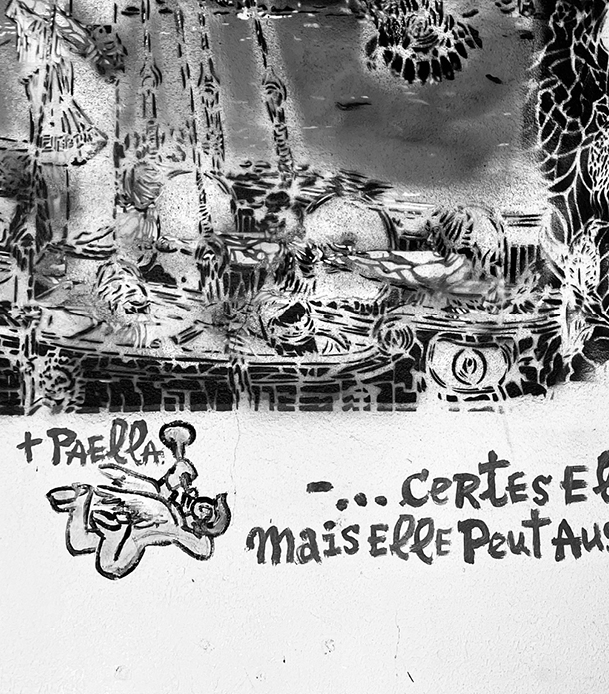 + PAElla.
-... CeRtEs El
mais EllE Peut Aus